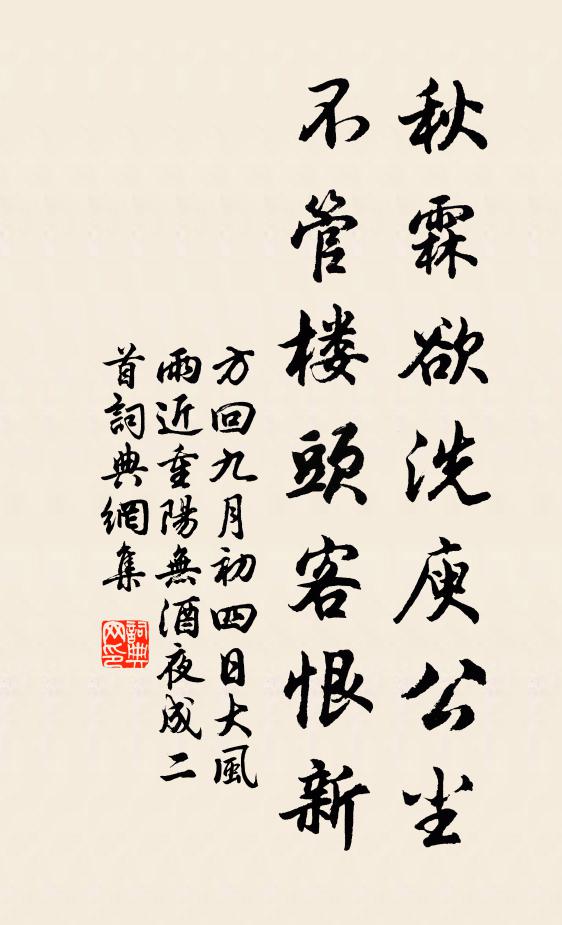 秋霖欲洗庾公尘
不管楼頭客恨新
方回九月初四日大風
雨近重陽無酒夜成二
首詞典網集
詞典
网印